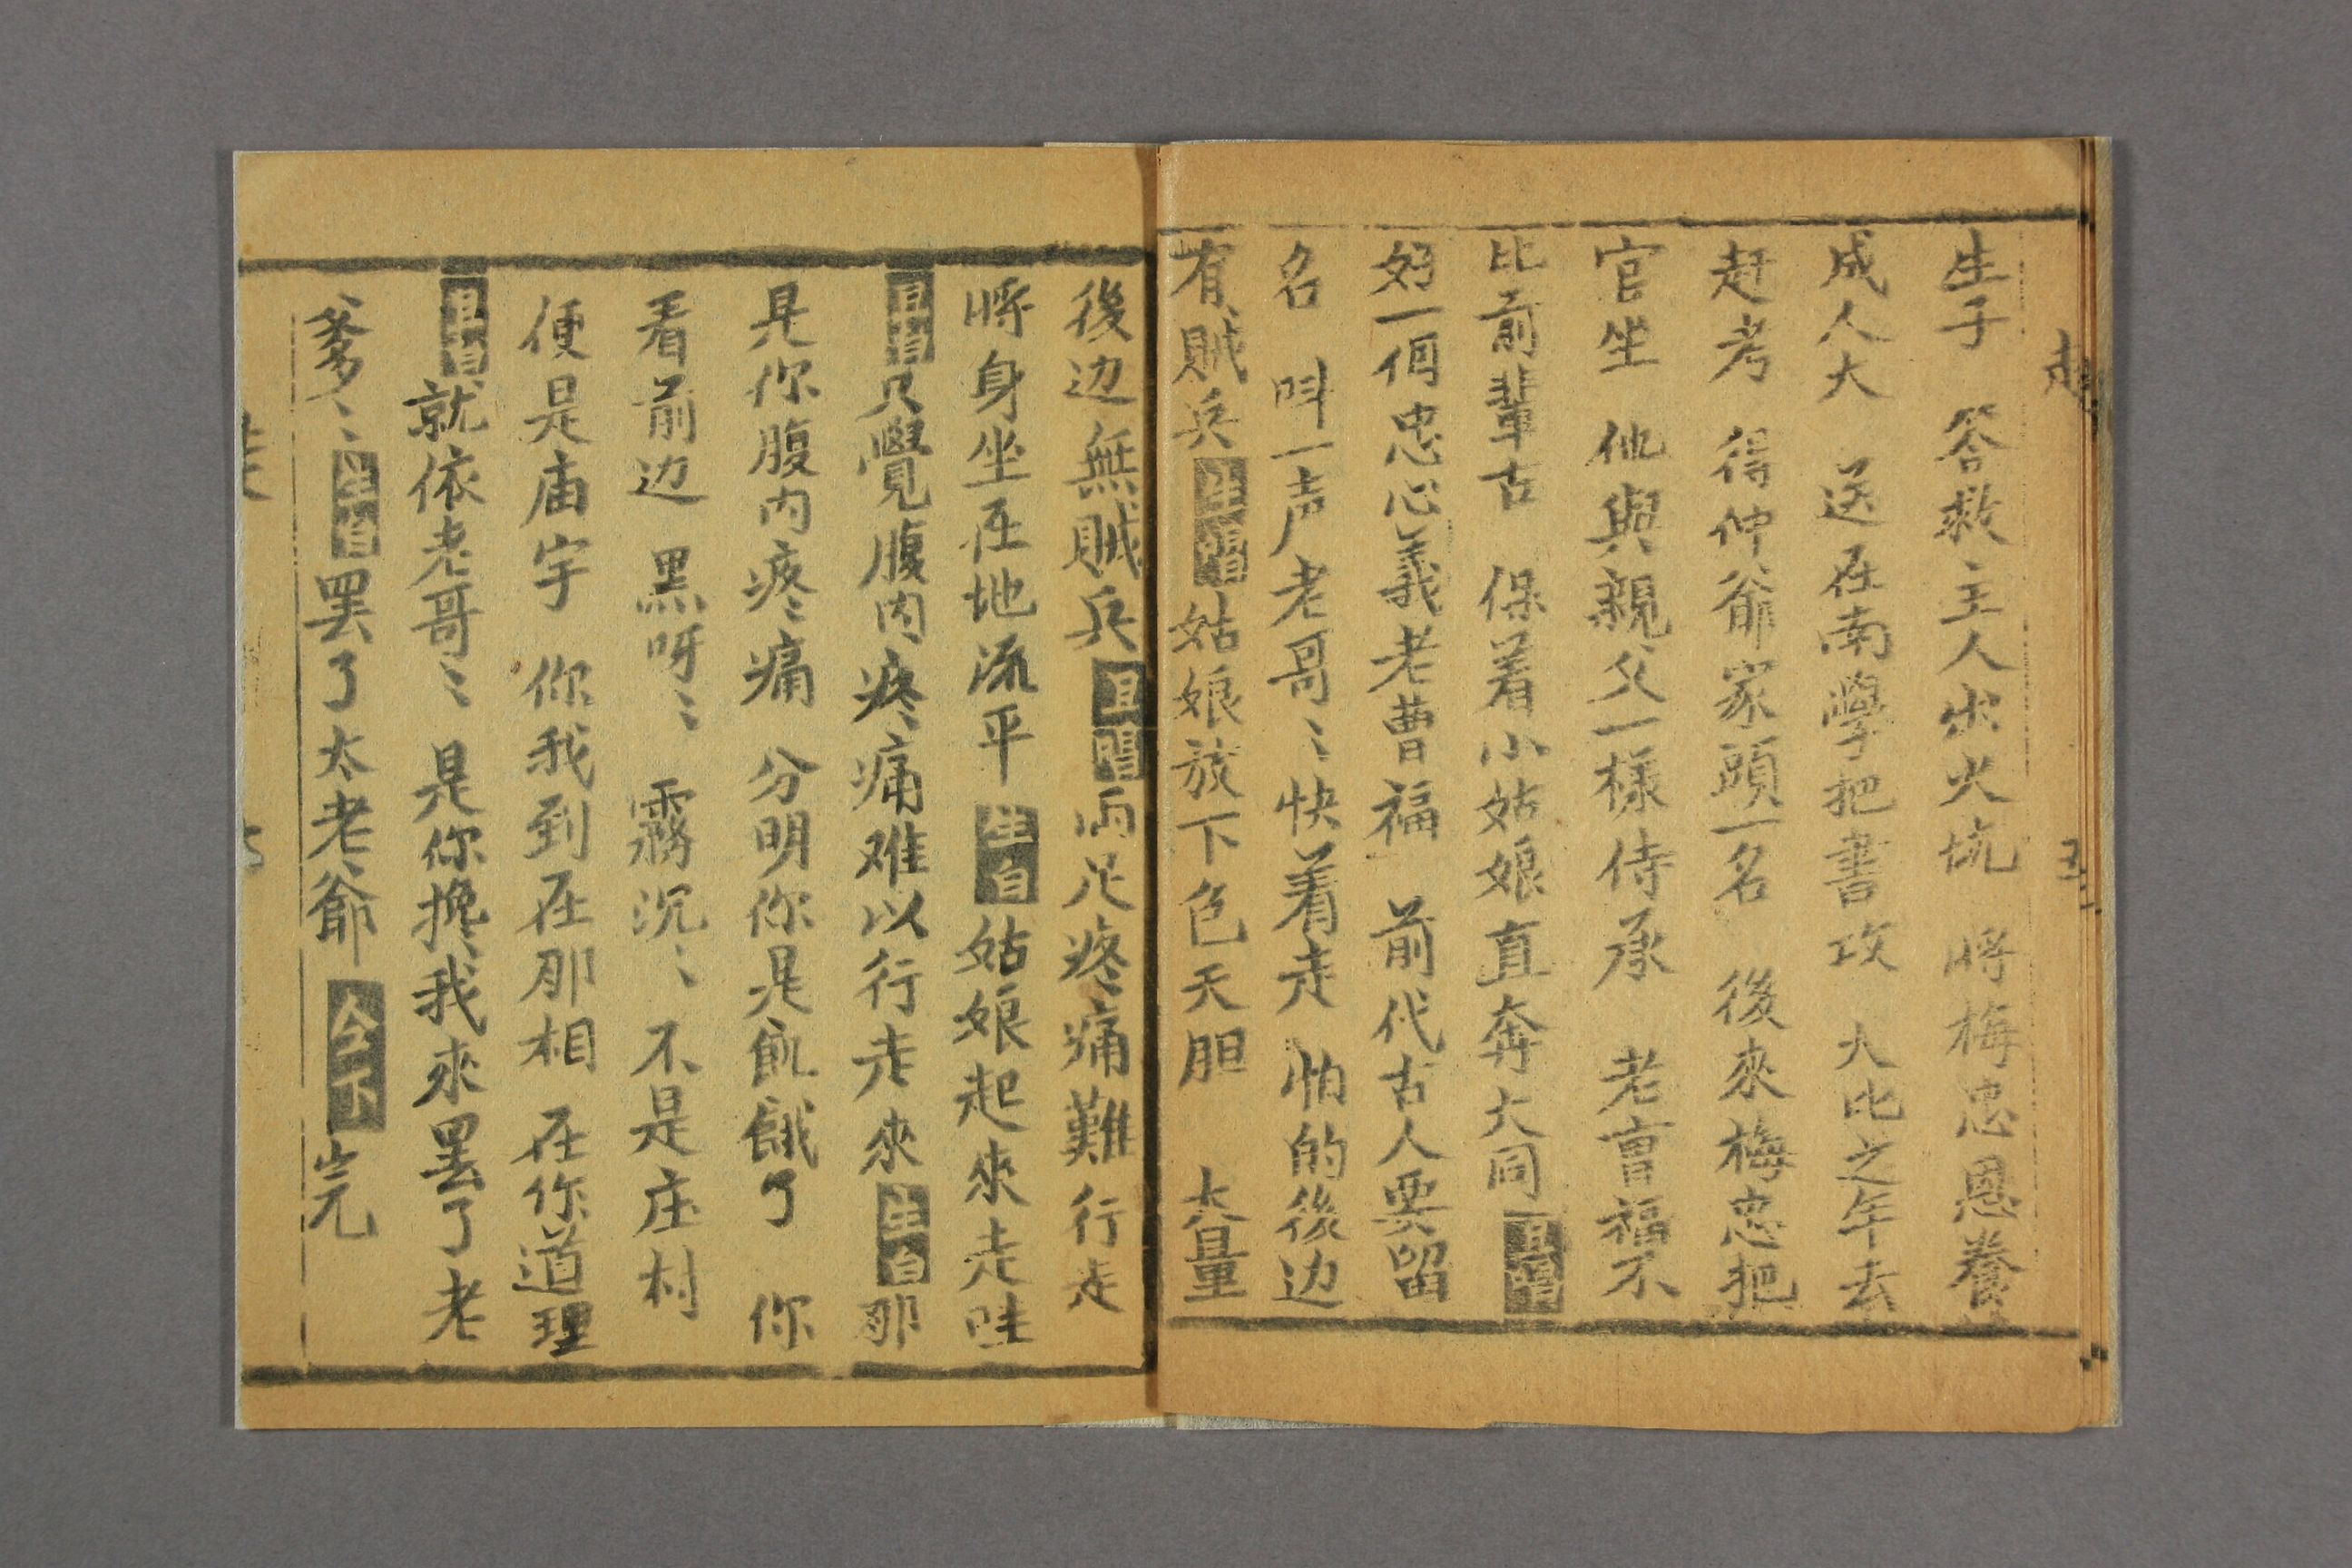 走
五
生子 答救主人出火坑 將梅忠恩養
成人大 送在南學把書攻 大比之年去
赶考 得仲爺家頭一名 後來梅忠把
官坐 他與親父一樣侍承 老曹福不
比前輩古 保着小姑娘直奔大同 旦唱
好一個忠心義老曹福 前代古人要留
名 叫一声老哥〻快着走 怕的後边
有賊兵 生唱 姑娘放下色天胆 大量
後边無賊兵 旦唱 两足疼痛難行走
將身坐在地流平 生白 姑娘起來走哇
旦白 只覺腹内疼痛难以行走來 生白 那
是你腹内疼痛 分明你是飢餓了 你
看前边 黑呀〻 霧沉〻 不是庄村
便是庙宇 你我到在那相 在你道理
旦白 就依老哥〻 是你攙我來罢了老
爹〻 生白 罢了太老爺 仝下 完